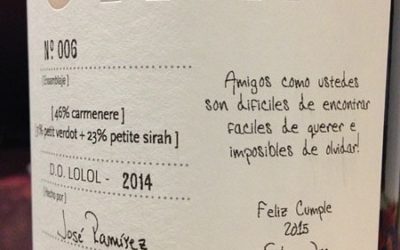 Nº 006
[Ensamblaje]
[46% carmenere]
% petit verdot + 23% petite sirah ]
D.O. LOLOL - 2014
[Hecho por]
José Ramírez
Amigos como ustedes
son dificiles de encontrar
faciles de querer e
imposibles de olvidar!
Feliz Cumple
2015